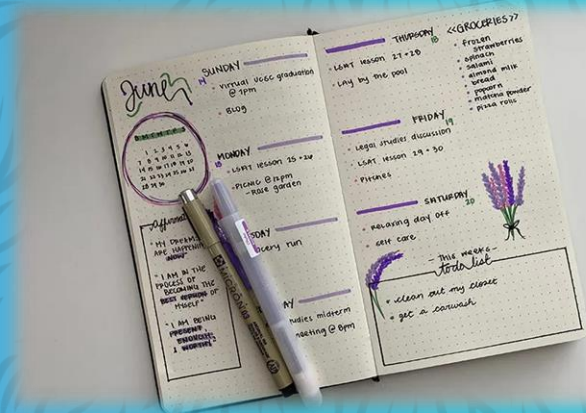 June
SUNDAY
14
• virtual UCSC graduation
@ 1pm
• BLOG
MONTH
1 2 3 4 5 6
7 8 9 10 11 12 13
14 15 16 17 18 19 20
21 22 23 24 25 26 27
28 29 30
MONDAY
15
• LSAT lesson 25 + 26
• PICNIC @ 12pm
- Rose garden
SDAY
cery run
AY
udies midterm
meeting @ 8pm
affirmat
"MY DREAMS
ARE HAPPENING
NOW"
"I AM IN THE
PROCESS OF
BECOMING THE
BEST VERSION OF
MYSELF"
"I AM BEING
PRESENT
ENOUGH
I WORTHY
MICRON
THURSDAY
18
• LSAT lesson 27 + 28
• Lay by the pool
FRIDAY
19
• Legal studies discussion
• LSAT lesson 29 + 30
• Pitches
SATURDAY
20
• relaxing day off
• self care
<<GROCERIES>>
• frozen
strawberries
• spinach
• salami
• almond milk
• bread
• popcorn
• matcha powder
• pizza rolls
- THIS WEEKS -
to do list
• clean out my closet
• get a carwash